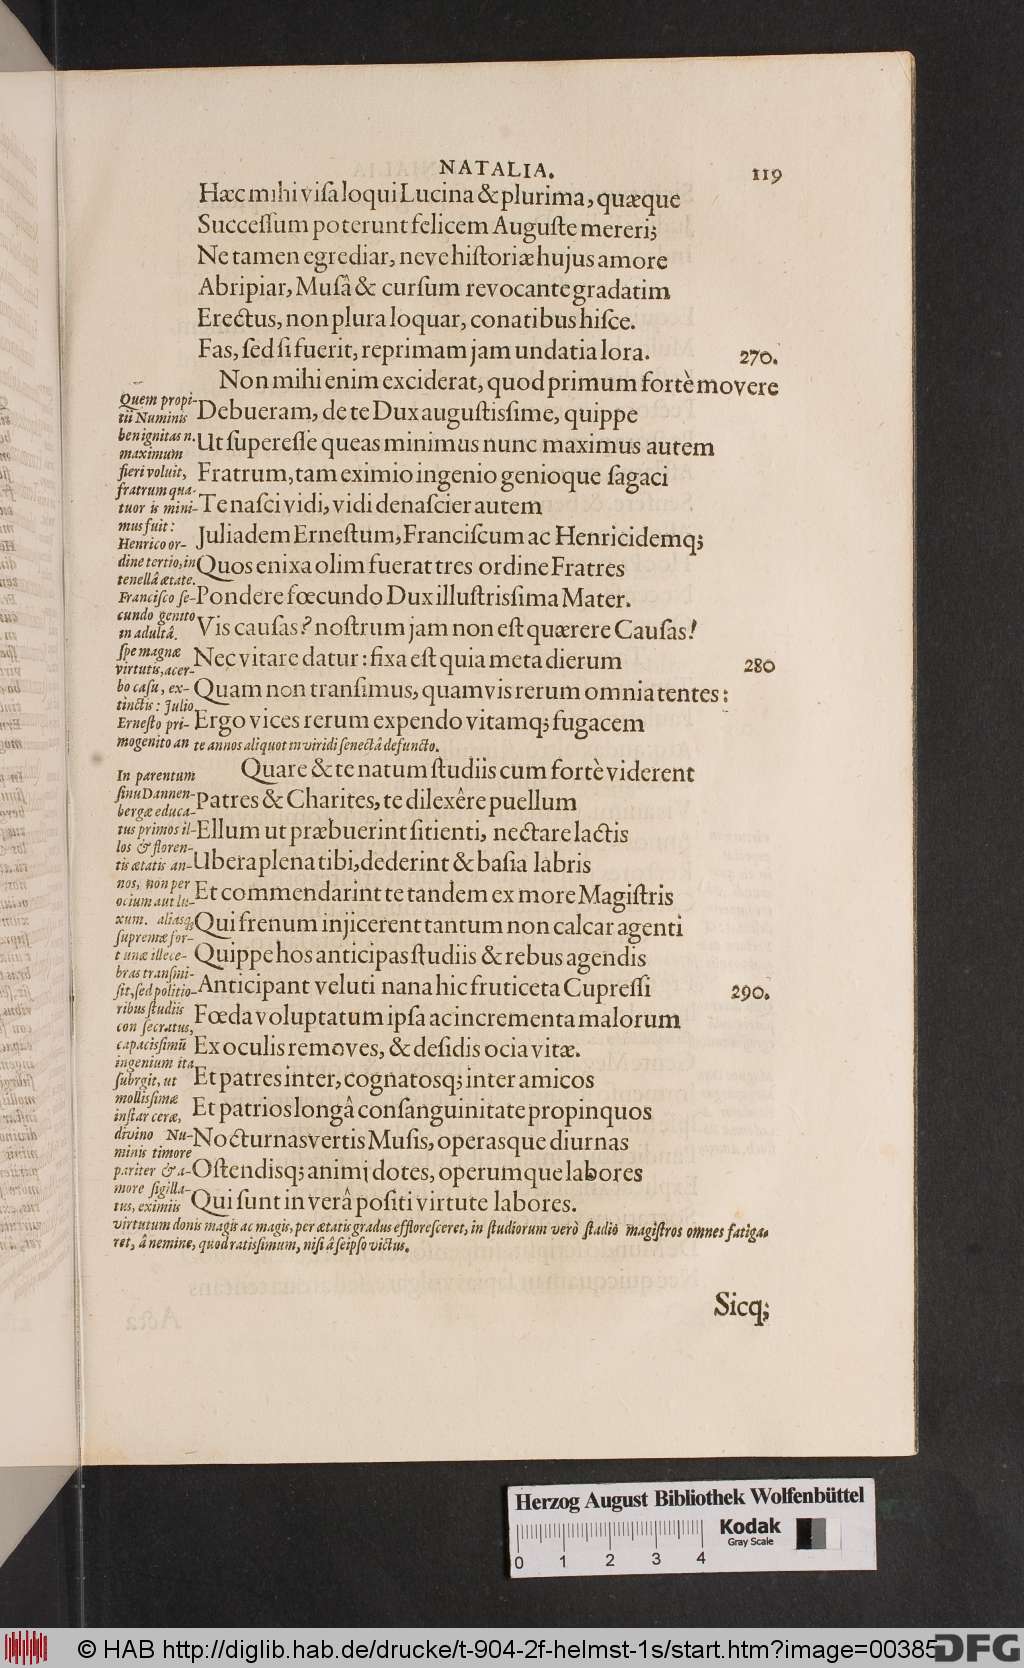 NATALIA. 119
Hæc mihi visa loqui Lucina & plurima, quæque
Successum poterunt felicem Auguste mereri;
Ne tamen egrediar, neve historiæ hujus amore
Abripiar, Musâ & cursum revocante gradatim
Erectus, non plura loquar, conatibus hisce.
Fas, sed si fuerit, reprimam jam undatia lora. 270.
Non mihi enim exciderat, quod primum fortè movere
Debueram, de te Dux augustissime, quippe
Ut superesse queas minimus nunc maximus autem
Fratrum, tam eximio ingenio genioque sagaci
Te nasci vidi, vidi denascier autem
Juliadem Ernestum, Franciscum ac Henricidemq;
Quos enixa olim fuerat tres ordine Fratres
Pondere fœcundo Dux illustrissima Mater.
Vis causas? nostrum jam non est quærere Causas!
Nec vitare datur: fixa est quia meta dierum 280
Quam non transimus, quamvis rerum omnia tentes:
Ergo vices rerum expendo vitamq; fugacem
Quem propi-
tii Numinis
benignitas n.
maximum
fieri voluit,
fratrum qua-
tuor is mini-
mus fuit:
Henrico or-
dine tertio, in
tenellâ ætate.
Francisco se-
cundo genito
in adultâ.
spe magnæ
virtutis, acer-
bo casu, ex-
tinctis: Julio
Ernesto pri-
mogenito an te annos aliquot in viridi senectâ defuncto.
Quare & te natum studiis cum fortè viderent
Patres & Charites, te dilexêre puellum
Ellum ut præbuerint sitienti, nectare lactis
Ubera plena tibi, dederint & basia labris
Et commendarint te tandem ex more Magistris
Qui frenum injicerent tantum non calcar agenti
Quippe hos anticipas studiis & rebus agendis
Anticipant veluti nana hic fruticeta Cupressi 290.
Fœda voluptatum ipsa ac incrementa malorum
Ex oculis removes, & desidis ocia vitæ.
Et patres inter, cognatosq; inter amicos
Et patrios longâ consanguinitate propinquos
Nocturnas vertis Musis, operasque diurnas
Ostendisq; animi dotes, operumque labores
Qui sunt in verâ positi virtute labores.
In parentum
sinu Dannen-
bergæ educa-
tus primos il-
los & floren-
tis ætatis an-
nos, non per
ocium aut lu-
xum. aliasq;
supremæ for-
tunæ illece-
bras transmi-
sit, sed politio-
ribus studiis
consecratus,
capacissimũ
ingenium ita
subrgit, ut
mollissimæ
instar ceræ,
divino Nu-
minis timore
pariter & a-
more sigilla-
tus, eximiis
virtutum donis magis ac magis, per ætatis gradus effloresceret, in studiorum verò stadio magistros omnes fatiga-
ret, â nemine, quod ratissimum, nisi â seipso victus.
Sicq;
Herzog August Bibliothek Wolfenbüttel
Kodak
Gray Scale
0 1 2 3 4
© HAB http://diglib.hab.de/drucke/t-904-2f-helmst-1s/start.htm?image=00385
DFG